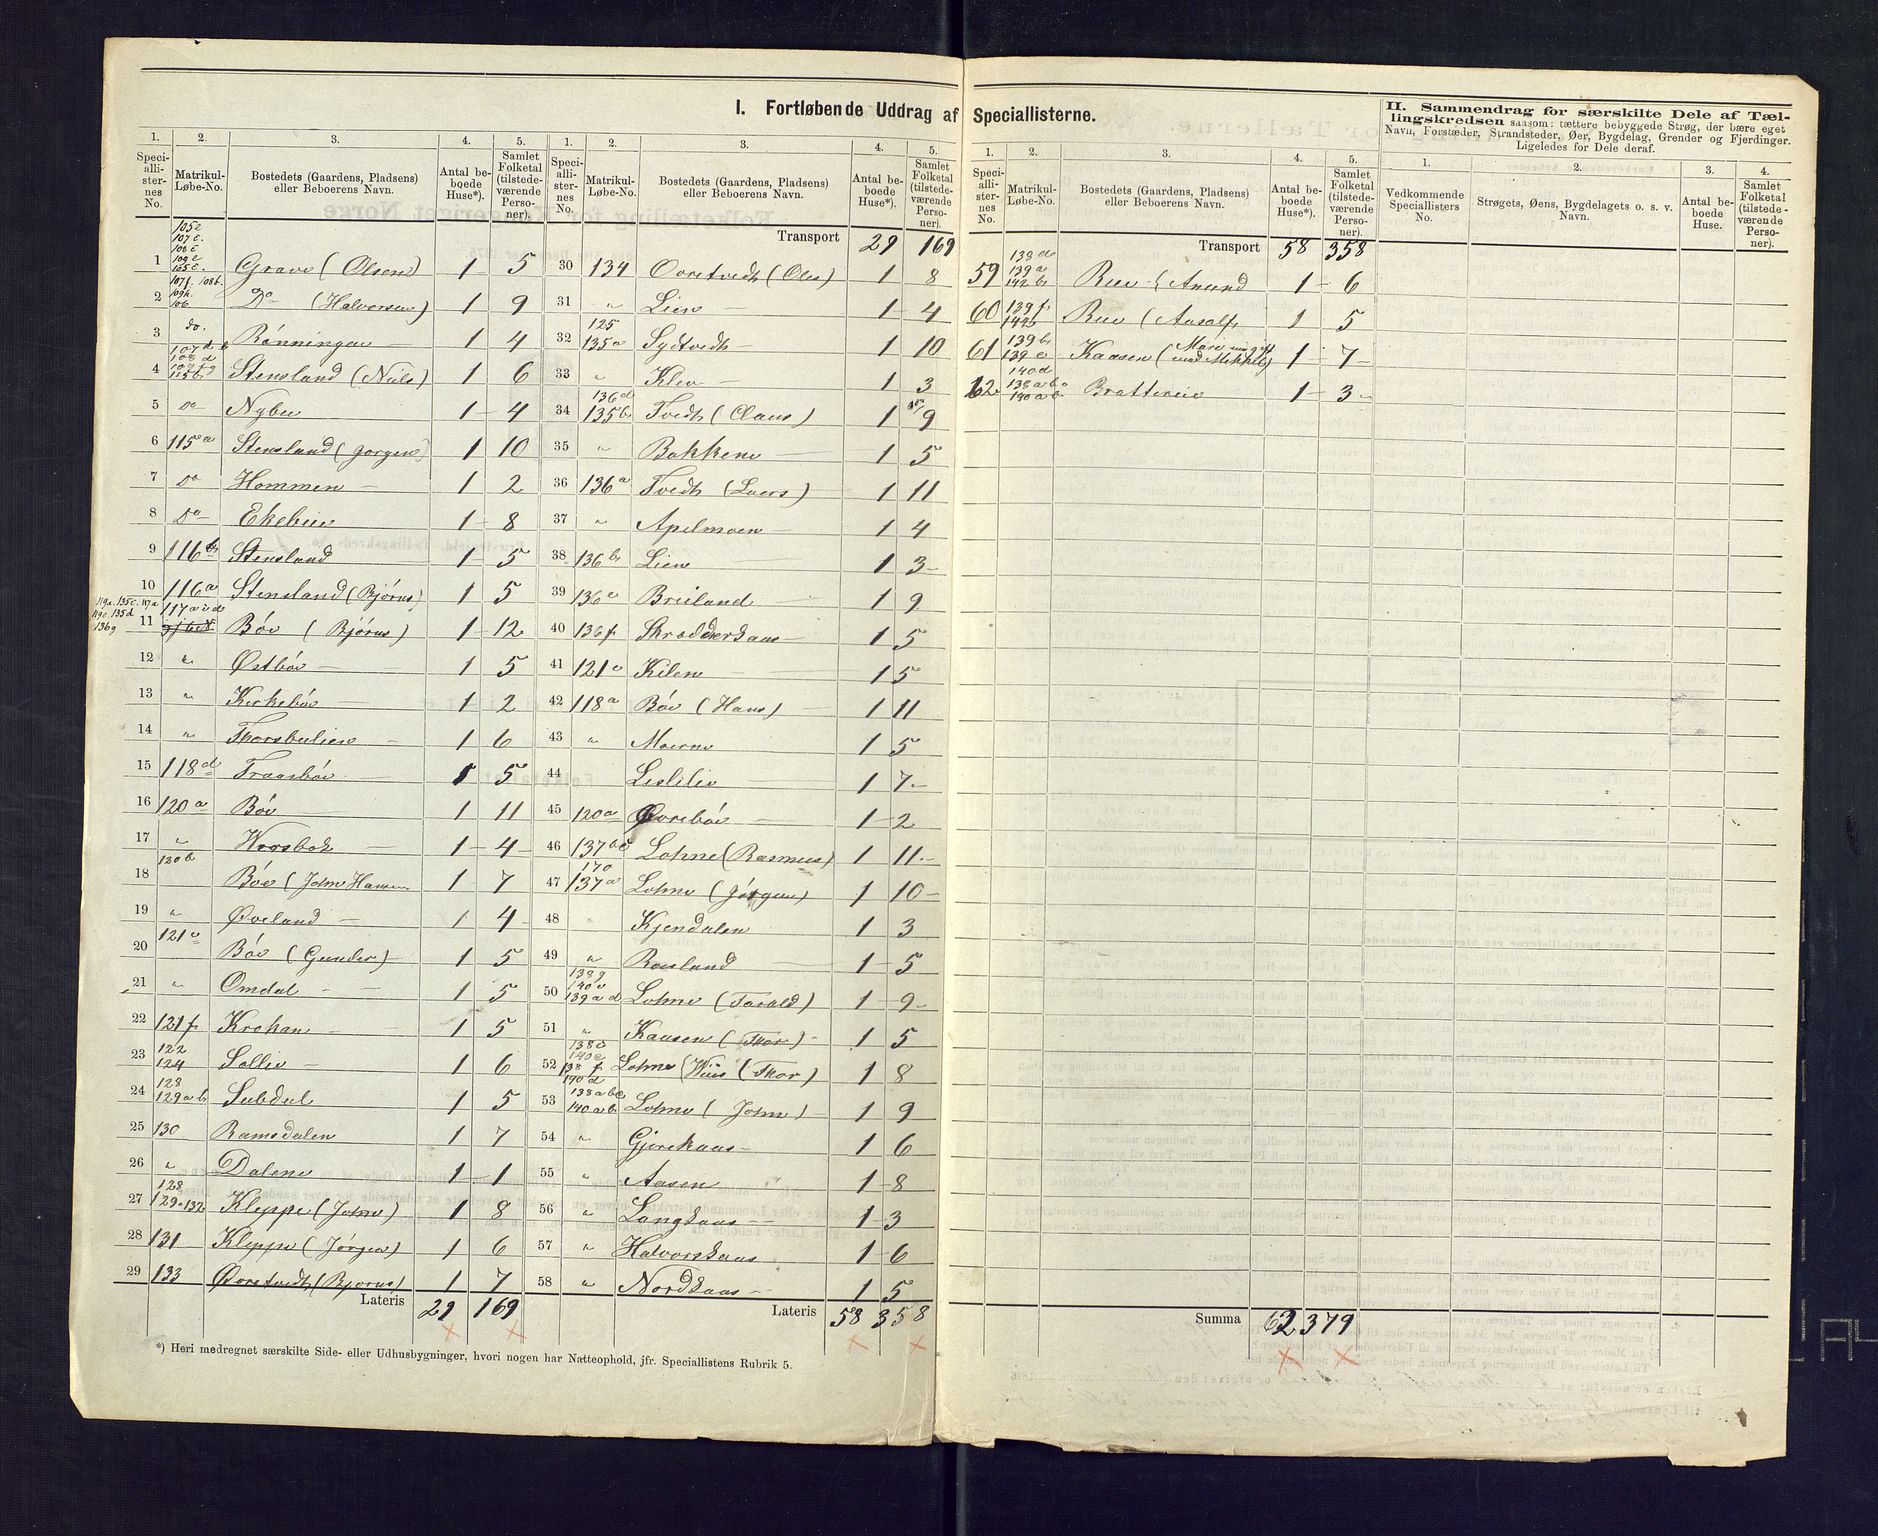 I. Fortløbende Uddrag af Speciallisterne.
1. 2. 3. 4. 5.
Speciallisternes No. Matrikul-Løbe-No. Bostedets (Gaardens, Pladsens) eller Beboerens Navn. Antal beboede Huse*). Samlet Folketal (tilstedeværende Personer).
1 105e 107c. 108c 109e 165c. Grave (Olsen) 1 5
2 107f. 108b. 109h. 106. Do (Halvorsen) 1 9
3 do. Rønningen 1 4
4 107d 108d 115b Stensland (Niels) 1 6
5 Do Nybu 1 4
6 115a Stensland (Jørgen) 1 10
7 Do Hommen 1 2
8 Do Ekebu 1 8
9 116b Stensland 1 5
10 116a Stensland (Bjørn) 1 5
119a. 135c. 117a 119c. 135d 136g
11 117a d Bøv (Bjørn) 1 12
12 " Østbøv 1 5
13 " Kirkebøv 1 2
14 " Thorsbulien 1 6
15 118d Traasbøv 1 5
16 120a Bøv 1 11
17 " Worsbok 1 4
18 120b Bøv (John Hansen 1 7
19 " Øveland 1 4
20 121 Bøv (Gunder) 1 5
21 " Omdal 1 5
22 121f Krokan 1 5
23 122 124 Sollie 1 6
24 128 129a b Subdal 1 5
25 130 Ramsdalen 1 7
26 " Dalene 1 1
27 128 129a 132 Kleppe (John) 1 8
28 131 Kleppe (Jørgen) 1 6
29 133 Øvrstvedt (Bjørn) 1 7
Lateris 29 169
*) Heri medregnet særskilte Side- eller Udhusbygninger, hvori nogen har Natteophold, jfr. Speciallistens Rubrik 5.
1. 2. 3. 4. 5.
Speciallisternes No. Matrikul-Løbe-No. Bostedets (Gaardens, Pladsens) eller Beboerens Navn. Antal beboede Huse*). Samlet Folketal (tilstedeværende Personer).
Transport 29 169
30 134 Ovrstvedt (Ole) 1 8
31 " Lien 1 4
32 125 135a Sydtvedt 1 10
33 " Klev 1 3
34 136d 135b Tvedt (Claus) 1 9
35 " Bakkene 1 5
36 136a Tvedt (Lars) 1 11
37 " Apelmoen 1 4
38 136b Lien 1 3
39 136e Breiland 1 9
40 136f Skrædderaas 1 5
41 121 Kilen 1 5
42 118a Bøv (Hans) 1 11
43 " Moerne 1 5
44 Leslilie 1 7
45 120a Øvrebøv 1 2
46 137b Lohne (Rasmus) 1 11
47 170 137a Lohne (Jørgen) 1 10
48 Kjendalen 1 3
49 " Rosland 1 5
50 138g 140 139a d Lohne (Tarald) 1 9
51 " Kaasen (Thor) 1 5
52 138e 140c 138f 140d Lohne Wiis (Thor) 1 8
53 138abc 140ab Lohne (John) 1 9
54 " Gjerekaas 1 6
55 " Aasen 1 8
56 " Langkaas 1 3
57 " Halvorskaas 1 6
58 " Nordkaas 1 5
Lateris 58 358
1. 2. 3. 4. 5.
Speciallisternes No. Matrikul-Løbe-No. Bostedets (Gaardens, Pladsens) eller Beboerens Navn. Antal beboede Huse*). Samlet Folketal (tilstedeværende Personer).
Transport 58 358
59 138d 139a 142b Rue (Anund 1 6
60 139f 142b Rue (Aasolf 1 5
61 139b 139c Kaasen (Mari Mikkels) 1 7
62 140d 138ab 140ab Bratterei 1 3
Summa 62 379
II. Sammendrag for særskilte Dele af Tællingskredsen saasom: tættere bebyggede Strøg, der bære eget Navn, Forstæder, Strandsteder, Øer, Bygdelag, Grender og Fjerdinger. Ligeledes for Dele deraf.
1. 2. 3. 4.
Vedkommende Speciallisters No. Strøgets, Øens, Bygdelagets o. s. v. Navn. Antal beboede Huse. Samlet Folketal (tilstedeværende Personer).